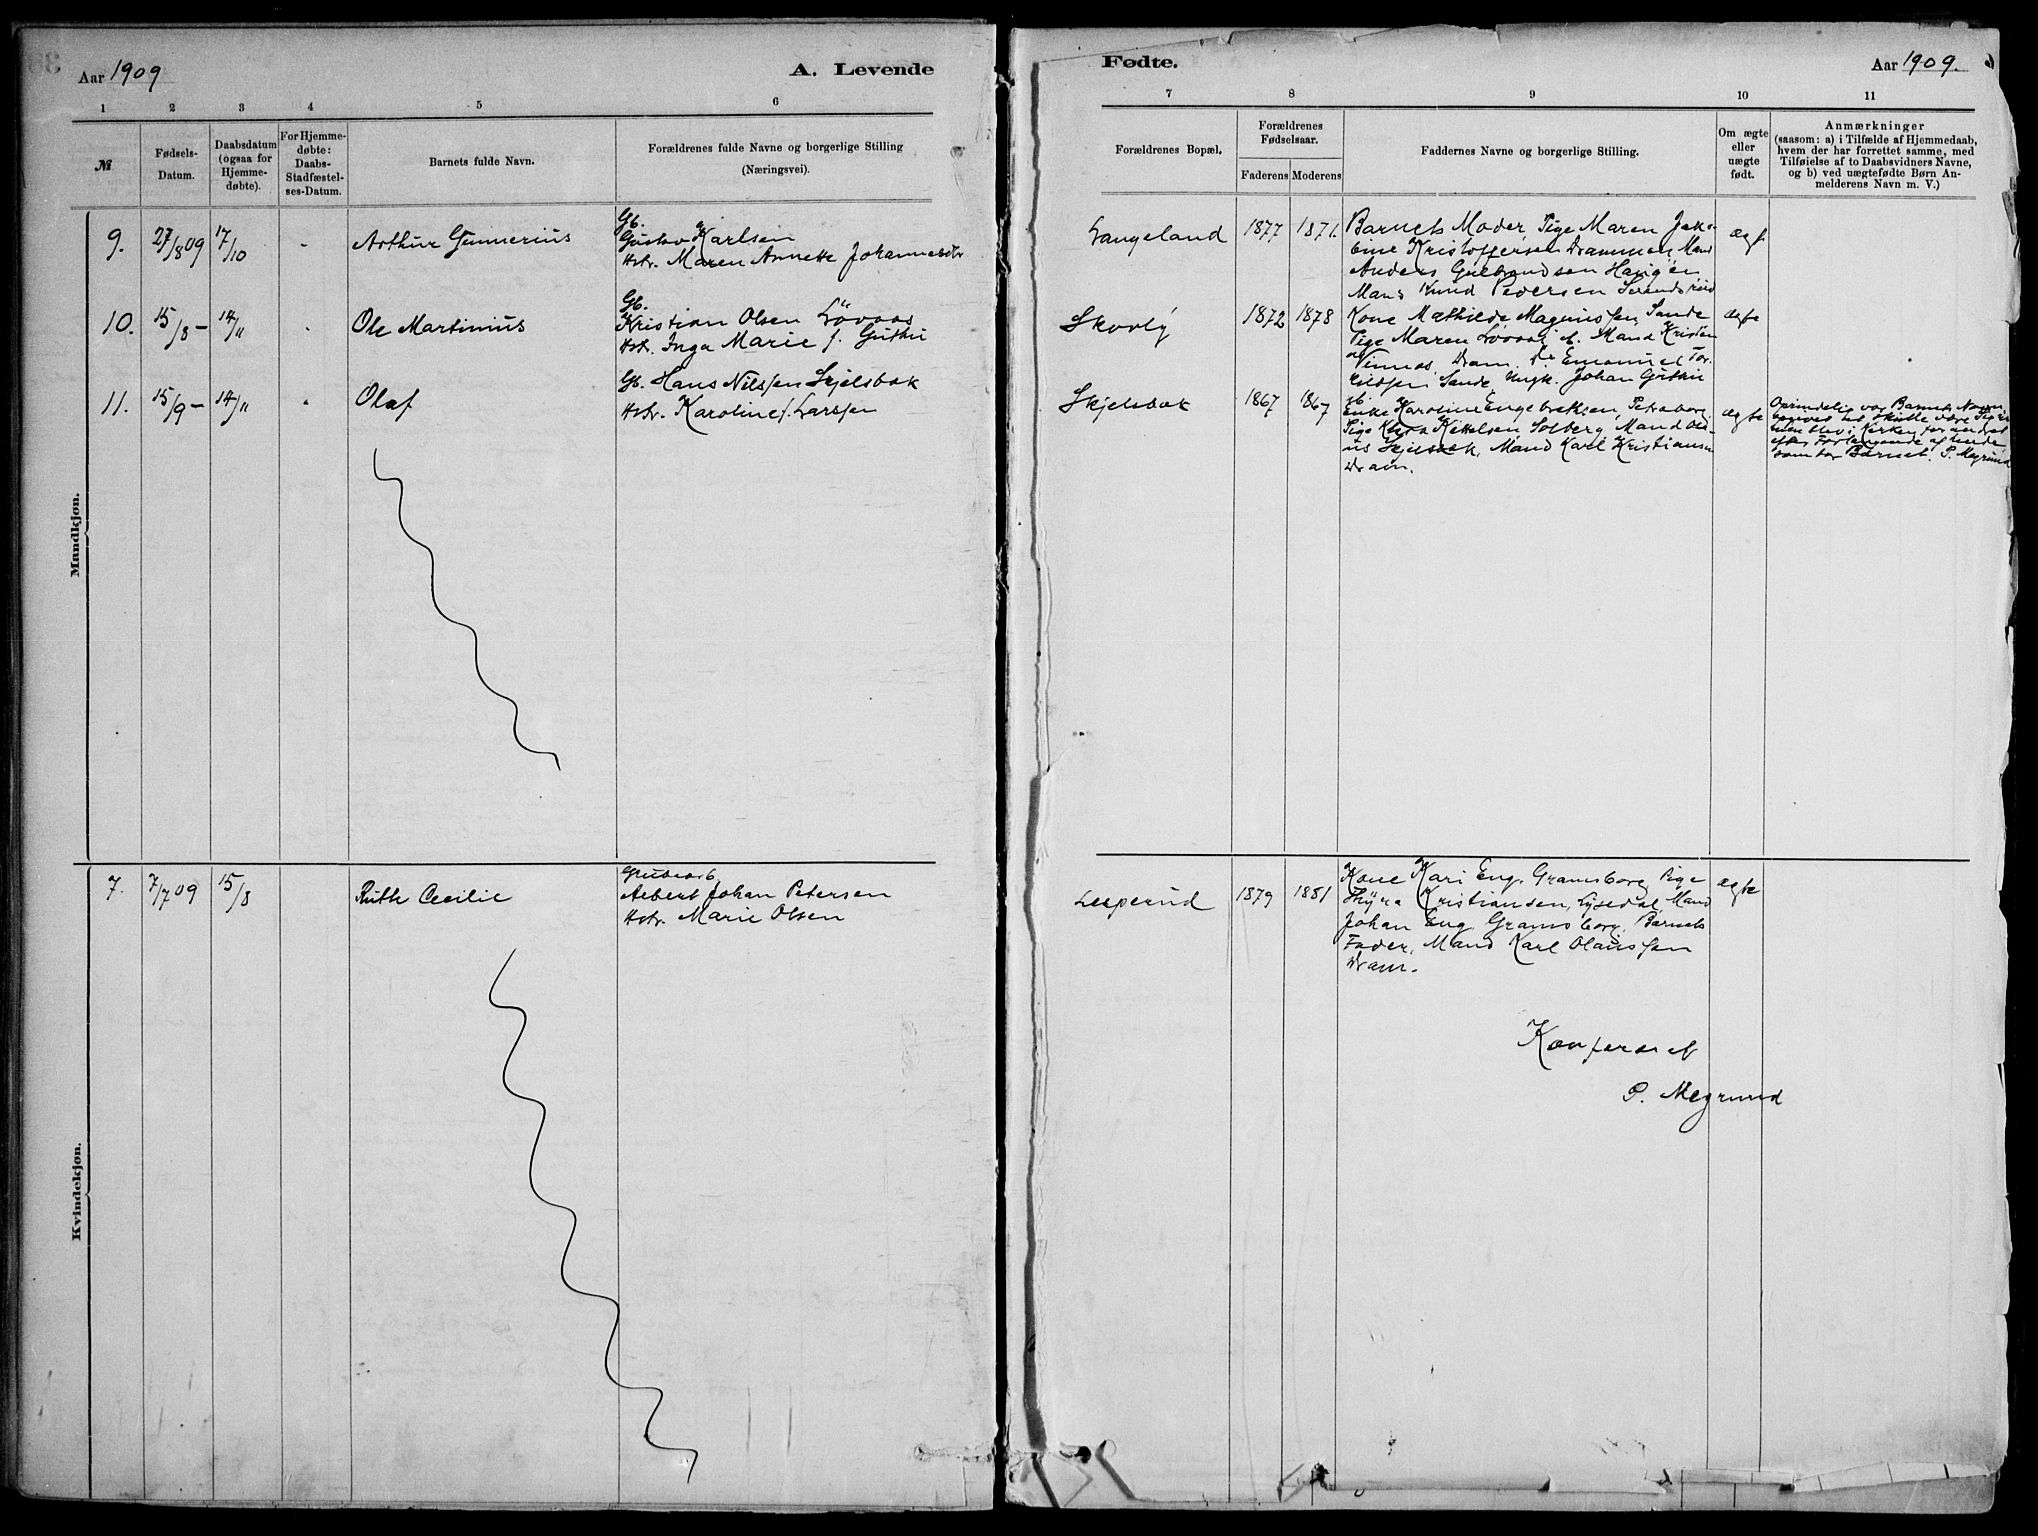 Aar 1909
A. Levende
1 2 3 4 5 6
№
Fødsels-
Datum.
Daabsdatum
(ogsaa for
Hjemme-
døbte).
For Hjemme-
døbte:
Daabs-
Stadfæstel-
ses-Datum.
Barnets fulde Navn.
Forældrenes fulde Navne og borgerlige Stilling
(Næringsvei).
Mandkjøn.
9. 27/8 09 17/10 - Arthur Gunnerius
Gb.
Gustav Karlsen
Hstr. Maren Annette Johannesdtr
10. 15/8 - 14/11 Ole Martinius
Gb.
Kristian Olsen Lövaas
Hstr. Inga Marie f. Guthu
11. 15/9 - 14/11 Olaf
Gb. Hans Nilssen Skjelsbæk
Hstr. Karoline f. Larssen
Kvindekjøn.
7. 7/7 09 15/8 Ruth Cecilie
Grubearb.
Albert Johan Petersen
Hstr. Marie Olsen
Fødte.
Aar 1909.
7 8 9 10 11
Forældrenes Bopæl.
Forældrenes
Fødselsaar.
Faderens Moderens
Faddernes Navne og borgerlige Stilling.
Om ægte
eller
uægte
født.
Anmærkninger
(saasom: a) i Tilfælde af Hjemmedaab,
hvem der har forrettet samme, med
Tilføielse af to Daabsvidners Navne,
og b) ved uægtefødte Børn An-
melderens Navn m. V.)
Langeland 1877 1871.
Barnets Moder Pige Maren Jak-
bine Kristoffersen Drammen, Mand
Anders Gulbrandsen
Mand Knud Pedersen
Skovly 1872 1878
Kone Mathilde Magnussen, Sande
Pige Maren Lövaas Mand Kristen
Dram. Emanuel Tor-
Sande, Ungk. Johan Guthu
ægte
Skjelsbæk 1867 1867
Enke Karoline Engebretsen, Petraborg.
Pige Klara Kittelsen Solberg Mand Ol-
us Skjelsbæk, Mand Karl Kristiansen
Dram.
ægte
Oprindelig var Barnets Navn
skulde være
men blev i Kirken forandret
efter Forlangende af hende
som bar Barnet. P. Megrund
Lesperud 1879 1881
Kone Kari Eng. Gramsborg, Pige
Thyra Kristiansen, Lysedal, Mand
Johan Eng. Gramsborg, Barnets
Fader, Mand Karl Olaussen
Dram.
ægte
Konfereret
P. Megrund